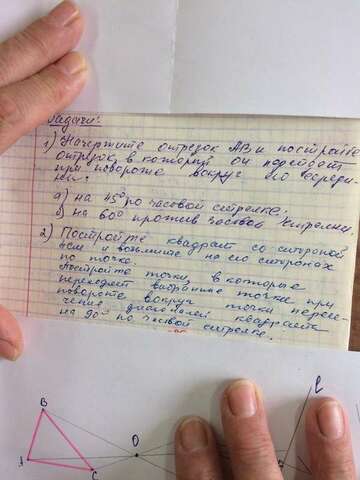 Задачи:
1) Начертите отрезок AB и постройте
отрезок, в который он перейдет
при повороте вокруг его середи-
ны:
а) на 45° по часовой стрелке.
б) на 60° против часовой стрелки.
2) Постройте квадрат со стороной
и возьмите на его сторонах
по точке.
Постройте точки, в которые
переходят выбранные точки при
повороте вокруг точки пересе-
чения диагоналей квадрата
на 90° по часовой стрелке.
B
O
A
C